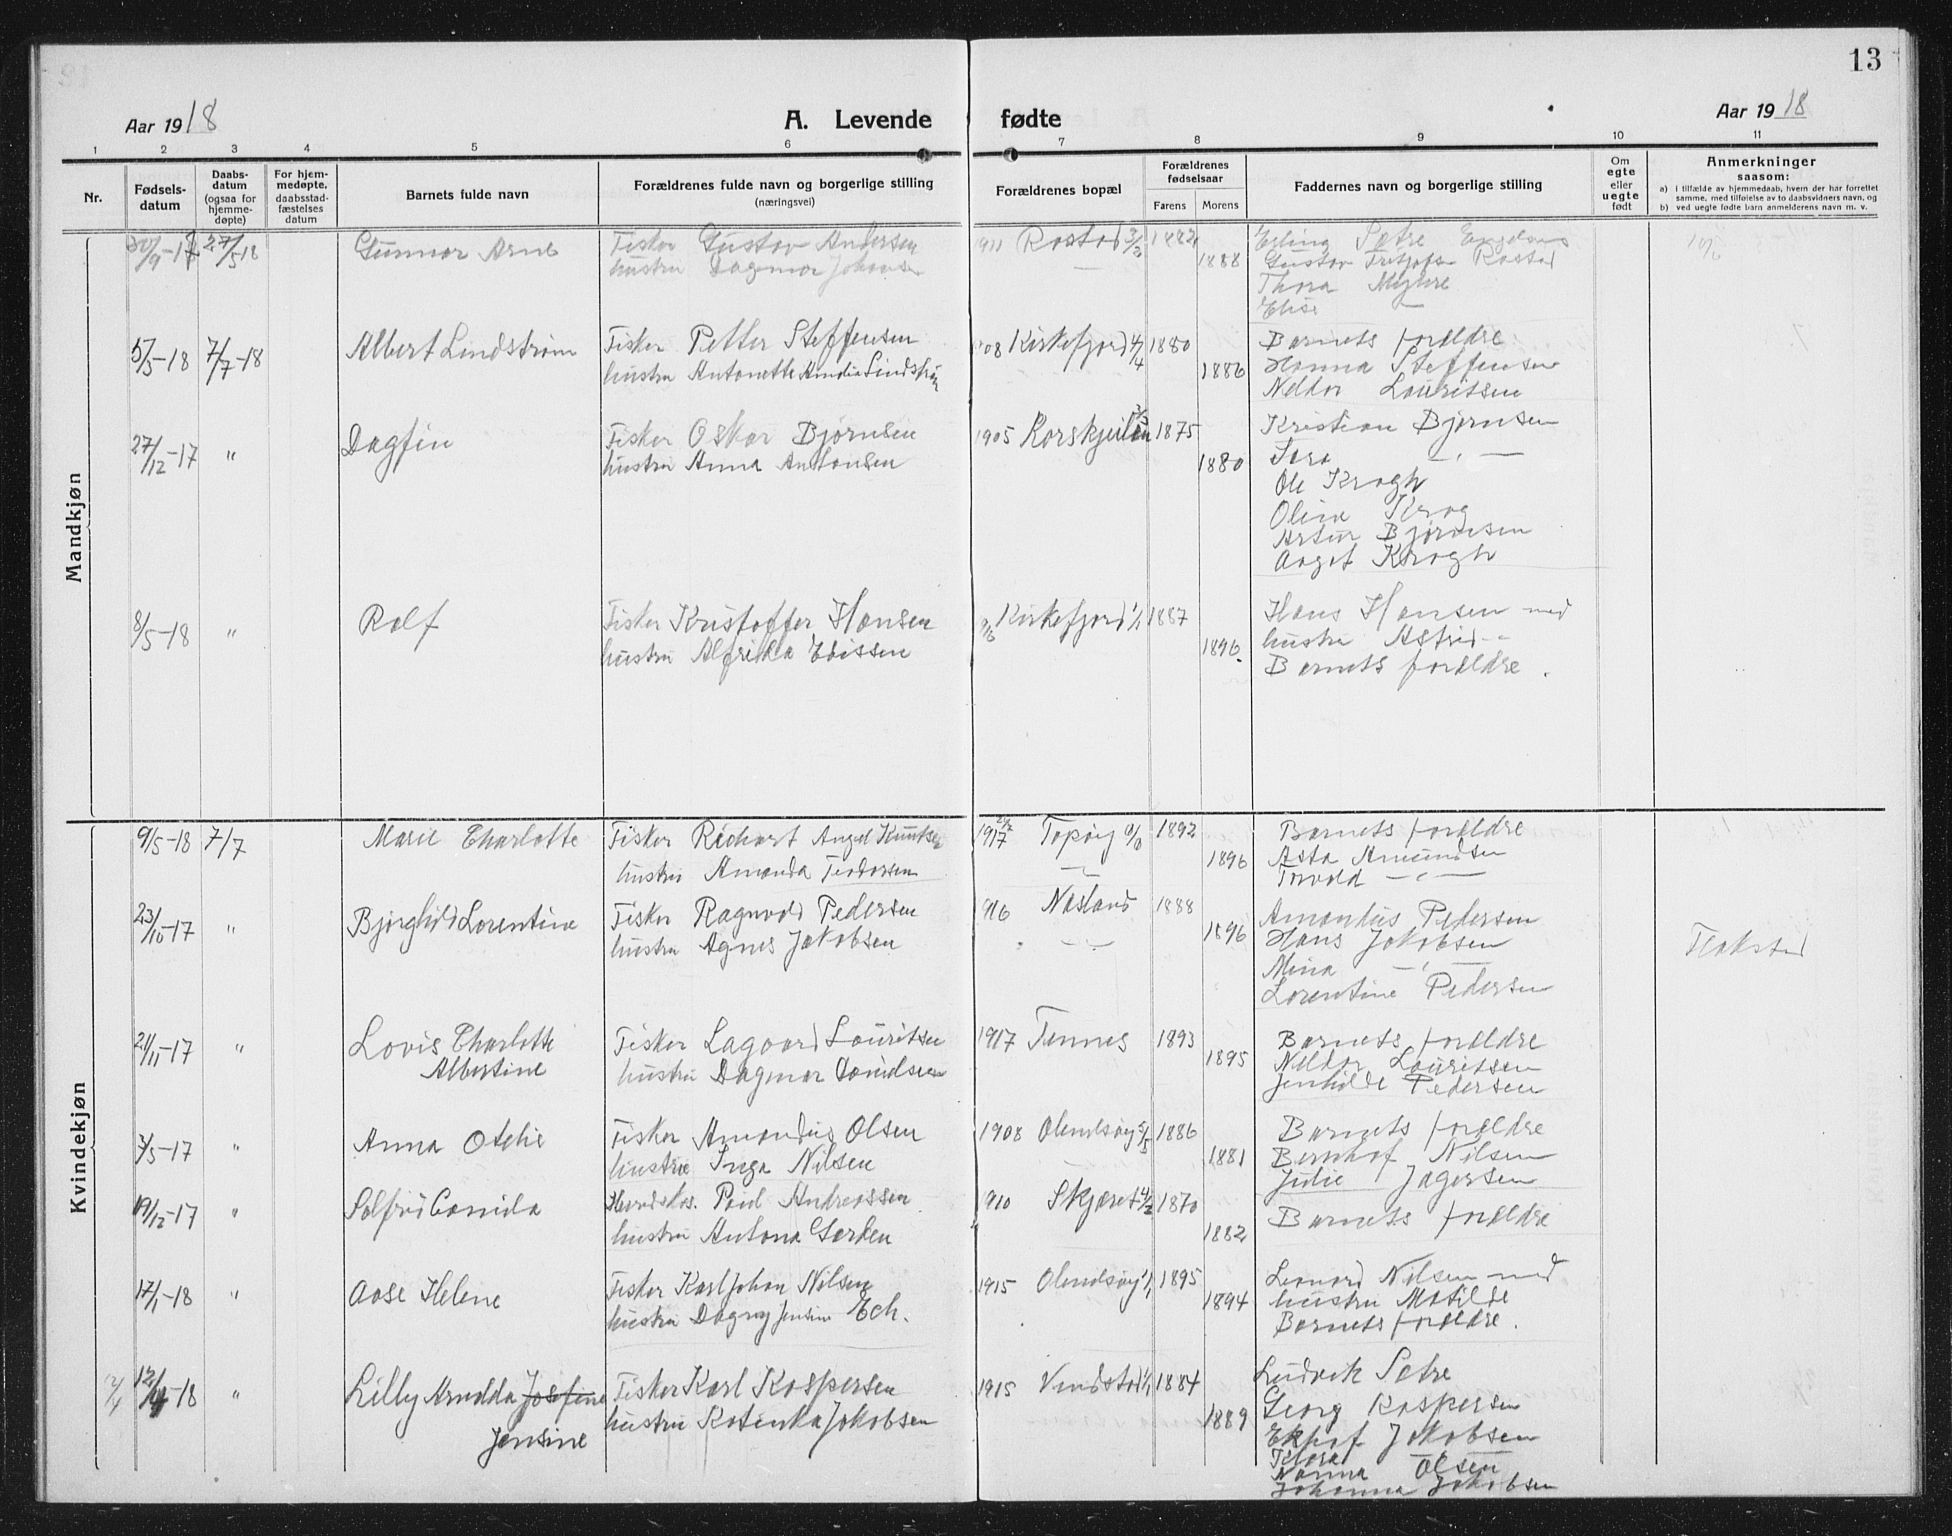 13
Aar 1918
A. Levende fødte
Aar 1918
1 2 3 4 5 6 7 8 9 10 11
Nr.
Fødsels-
datum
Daabs-
datum
(ogsaa for
hjemme-
døpte)
For hjem-
medøpte,
daabsstad-
fæstelses
datum
Barnets fulde navn
Forældrenes fulde navn og borgerlige stilling
(næringsvei)
Forældrenes bopæl
Forældrenes
fødselsaar
Farens Morens
Faddernes navn og borgerlige stilling
Om
egte
eller
uegte
født
Anmerkninger
saasom:
a) i tilfælde av hjemmedaab, hvem der har forrettet
samme, med tilføielse av to daabsvidners navn, og
b) ved uegte fødte barn anmelderens navn m. v.
Mandkjøn
30/9-17 27/5 18 Gunnar Arne Fisker Gustav Andersen 1911 Rostad 3/3 1882 Erling Sætre
hustru Dagmar Johansen 1888 Gustav Rostad
Thora Myhre
Elise —
5/5-18 7/7-18 Albert Lindstrøm Fisker Petter Steffensen 908 Kirkefjord 4/4 1880 Barnets forældre
hustru Antonette Amalie Lindstrøm 1886 Hanna Steffensen
Nektor Lauritsen
27/12-17 " Dagfin Fisker Oskar Bjørnsen 1905 Korskjeilen 1875 Kristian Bjørnsen
hustru Anna Antonsen 1880 Tora — " —
Ole Krogh
Olina Krog
Artur Bjørnsen
Aagot Krogh
8/5-18 " Rolf Fisker Kristoffer Hansen Kirkefjord 1/1 1887 Hans Hansen med
hustru Alfrida Edissen 1896 hustru Astrid — "
Barnets forældre.
Kvindekjøn
9/5-18 7/7 Marie Charlotte Fisker Richart Angel Knutsen 1917 Topøy 0/0 1892 Barnets forældre
hustru Amanda Teodorsen — " — 1896 Asta Amundsen
Torvald — " —
23/10-17 " Bjørghild Lorentine Fisker Ragnvald Pedersen 916 Nesland 1888 Amandus Pedersen
hustru Agnes Jakobsen — " — 1896 Hans Jakobsen
Mina — " —
Lorentine Pedersen
Flakstad
21/11-17 " Lovis Charlotte Fisker Lagaard Lauritsen 1917 Tennes 1893 Barnets forældre
Albertine hustru Dagmar Danielsen 1895 Nektor Lauritsen
Jenhilde Pedersen
3/5-17 " Anna Otelie Fisker Amandus Olsen 1908 Olendsøy 5/5 1886 Barnets forældre
hustru Inga Nilsen 1881 Bernhof Nilsen
Julie Jagersen
19/12-17 " Solfrid Camilla Paul Andreassen 1910 Skjæret 4/2 1870 Barnets forældre
hustru Antona Gerken 1882
17/1-18 " Aase Helene Fisker Karl Johan Nilsen 1915 Olendsøy 1/1 1895 Leonard Nilsen med
hustru Dagny Jensine Ech. 1894 hustru Matilde
Barnets forældre.
12/4 12/4-18 " Lilly Arnolda Josefine Fisker Karl Kaspersen 1915 Vindstad 1/1 1884 Ludvik Setre
Jensine hustru Katinka Jakobsen 1889 Georg Kaspersen
Ekhof Jakobsen
Tilora
Nanna Olsen
Johanna Jakobsen